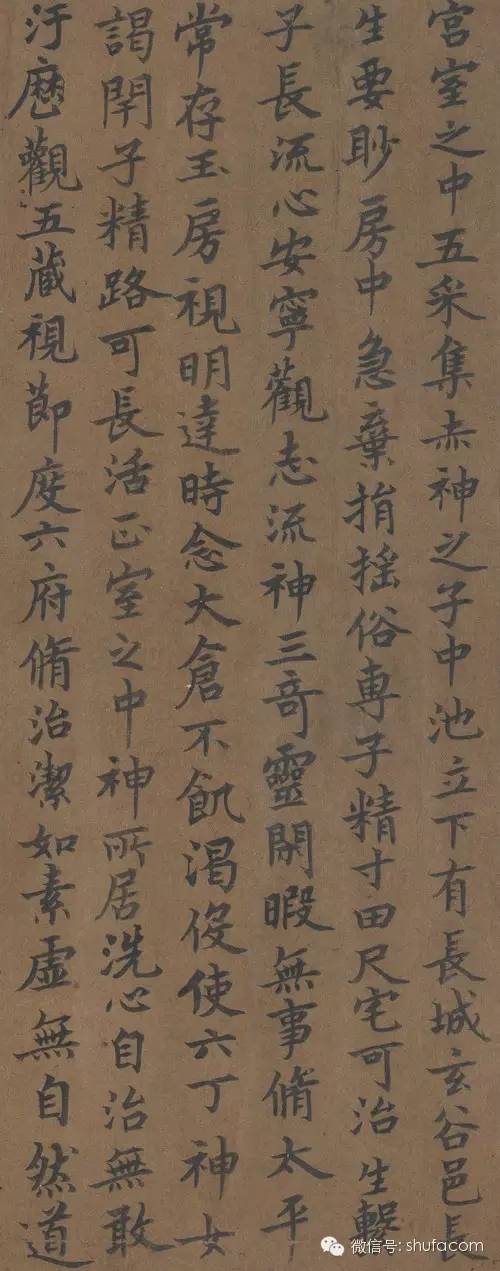 宮室之中五采集赤神之子中池立下有長城玄谷邑長
生要眇房中急棄捐揺俗専子精寸田尺宅可治生繫
子長流心安寧觀志流神三奇靈閑暇無事脩太平
常存玉房視明達時念大倉不飢渴役使六丁神女
謁閇子精路可長活正室之中神所居洗心自治無敢
汙歷觀五藏視節度六府脩治潔如素虛無自然道
微信号: shufacom